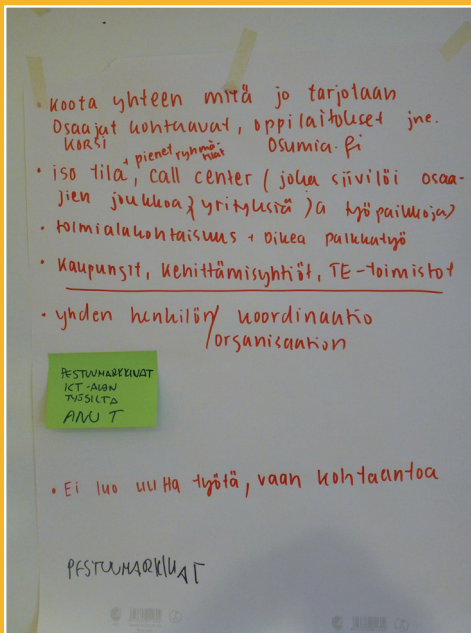 • koota yhteen mitä jo tarjotaan
Osaajat kohtaavat, oppilaitokset jne.
KORSI Osumia.fi
• iso tila, + pienet ryhmä-tilat call center (joka siivilöi osaa-
jien joukkoa & yrityksiä) ja työpaikkoja)
• toimialakohtaisuus + oikea palkkatyö
• Kaupungit, kehittämisyhtiöt, TE-toimistot
• yhden henkilön / koordinaatio
organisaation
PESTUUMARKKINAT
ICT-ALAN
TYÖSILTA
ANU T
• Ei luo uutta työtä, vaan kohtaantoa
PESTUUMARKINAT